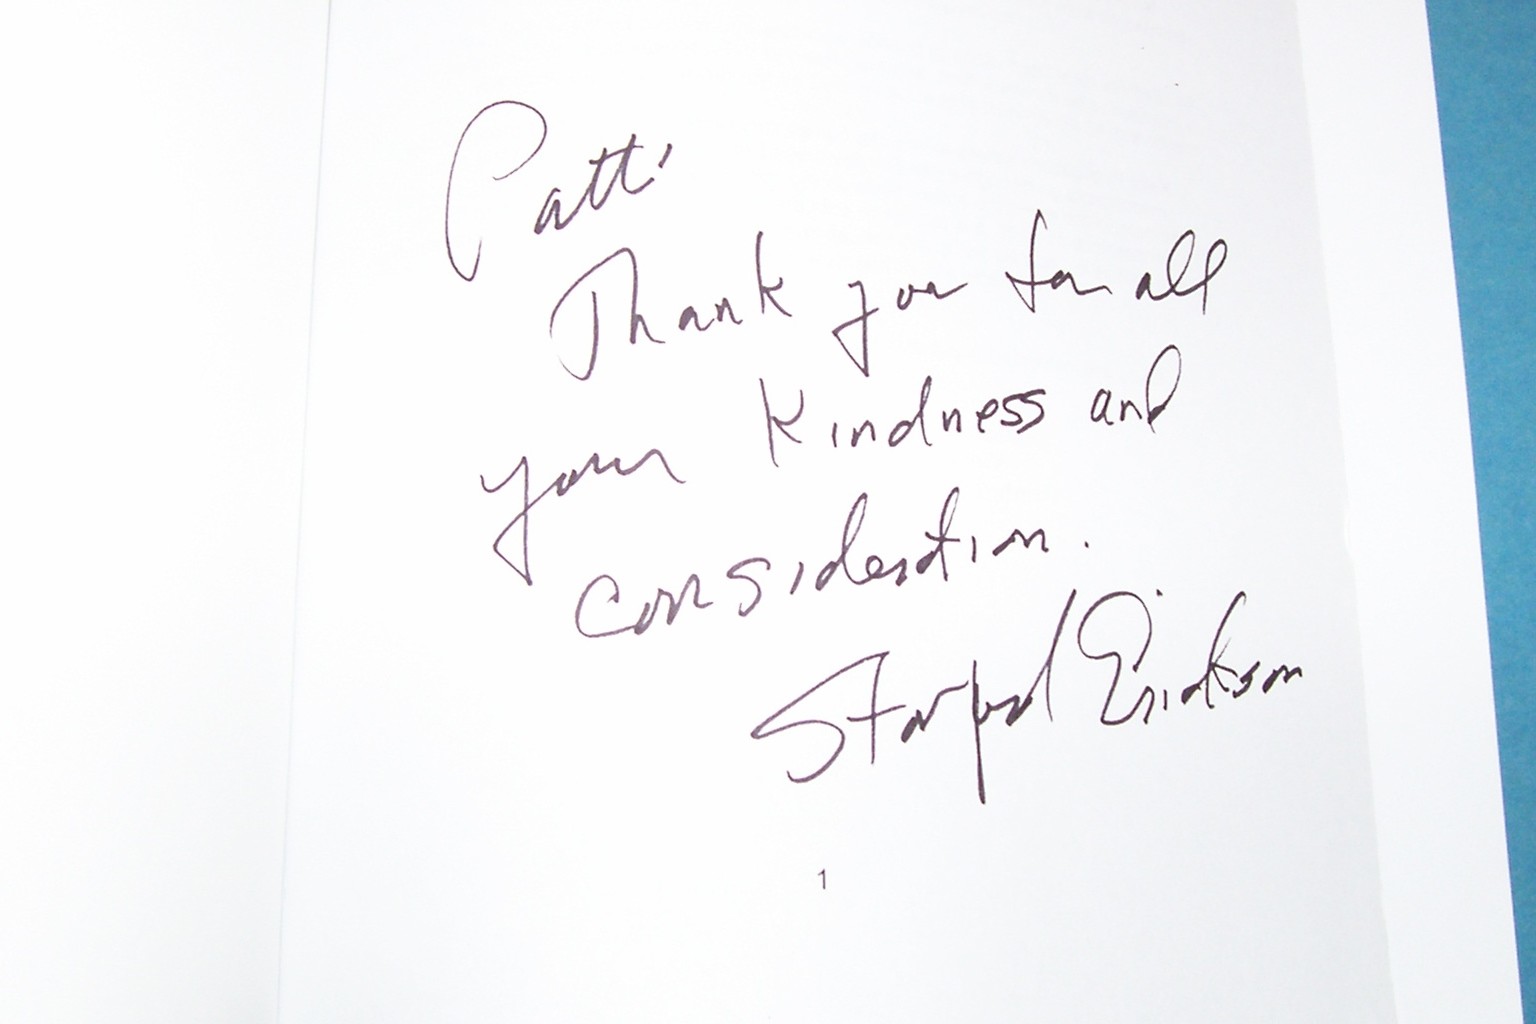 Patti
Thank you for all
your kindness and
consideration.
Erickson
1